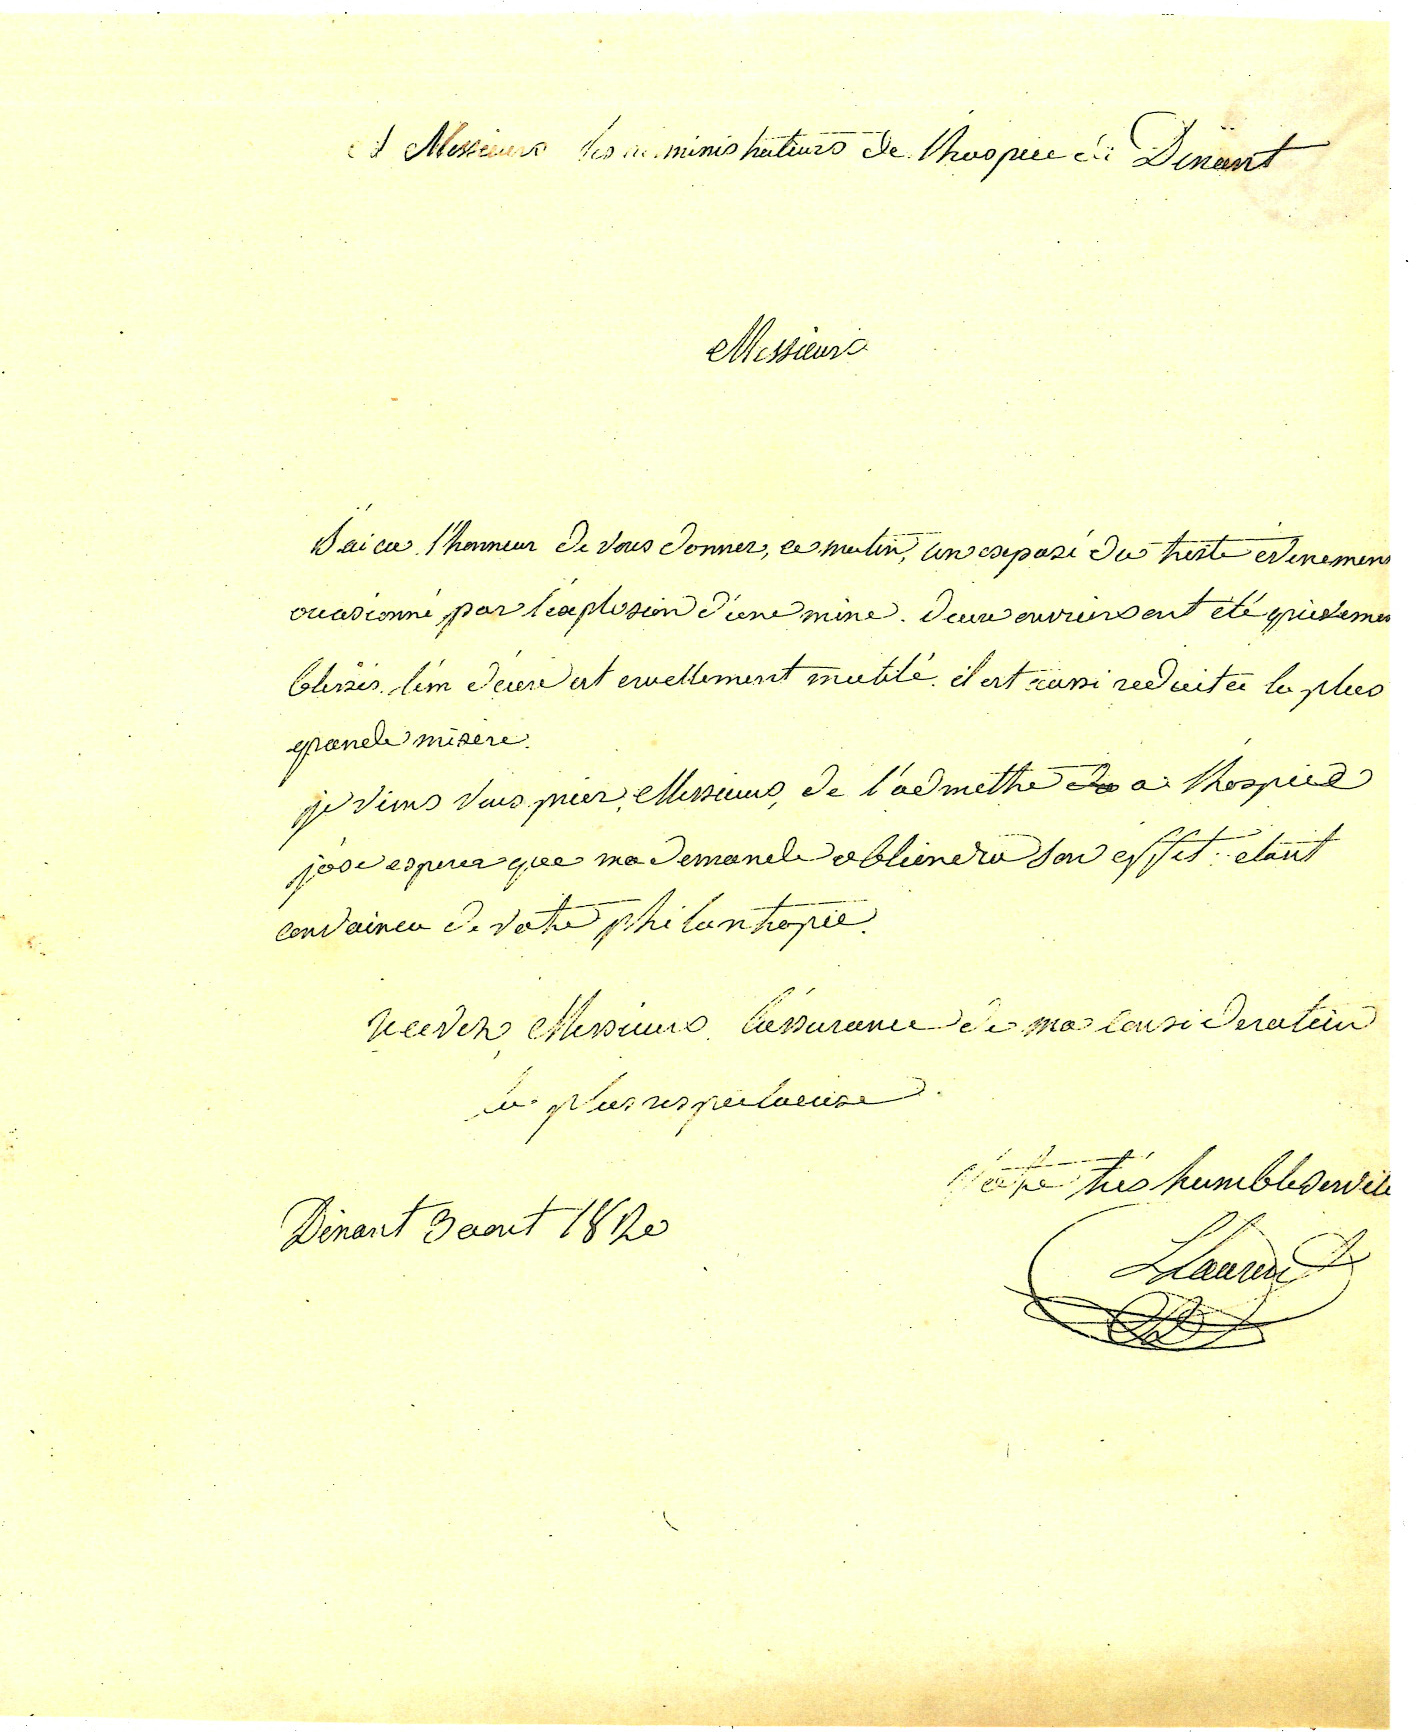 A Messieurs les administrateurs de l'hospice de Dinant
Messieurs
J'ai eu l'honneur de vous donner, ce matin, un exposé du triste évenemen
occasionné par l'explosion d'une mine. deux ouvriers ont été grievemen
blessés. l'un d'eux est cruellement mutilé. il est aussi reduit à la plus
grande misere.
je viens vous prier, Messieurs, de l'admettre a l'hospice
j'ose esperer que ma demande obtiendra son effet: etant
convaincu de votre philantropie.
recevez, Messieurs, l'assurance de ma consideration
la plus respectueuse.
Votre très humble servite
Dinant 3 aout
Laurent